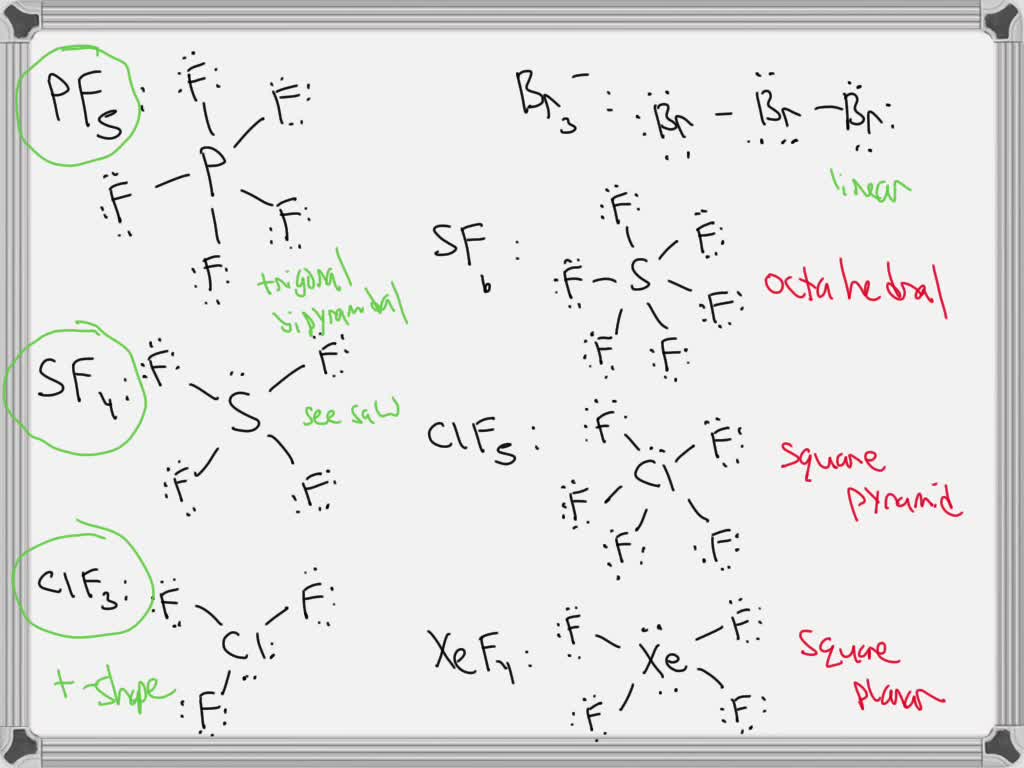 PF5:
F
F
P
F
F
F
trigonal
bipyramidal
SF4:
F
F
S
F
F
see saw
ClF3:
F
F
Cl
F
t-shape
Br3-:
Br - Br - Br
linear
SF6:
F
F
F - S
F
F
F
octahedral
ClF5:
F
F
Cl
F
F
F
square
pyramid
XeF4:
F
F
Xe
F
F
square
planar